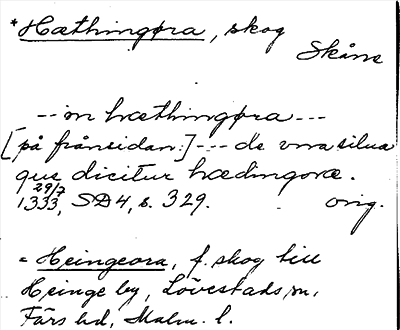 *Hæthingøra, skog
Skåne
-- in hæthingøra ---
[på frånsidan:] --- de vna silua
que dicitur hædingoræ.
29/7
1333, SD4, s. 329. orig.
= Heingeora, f. skog till
Heinge by, Lövestads sn,
Färs hd, Malm. l.